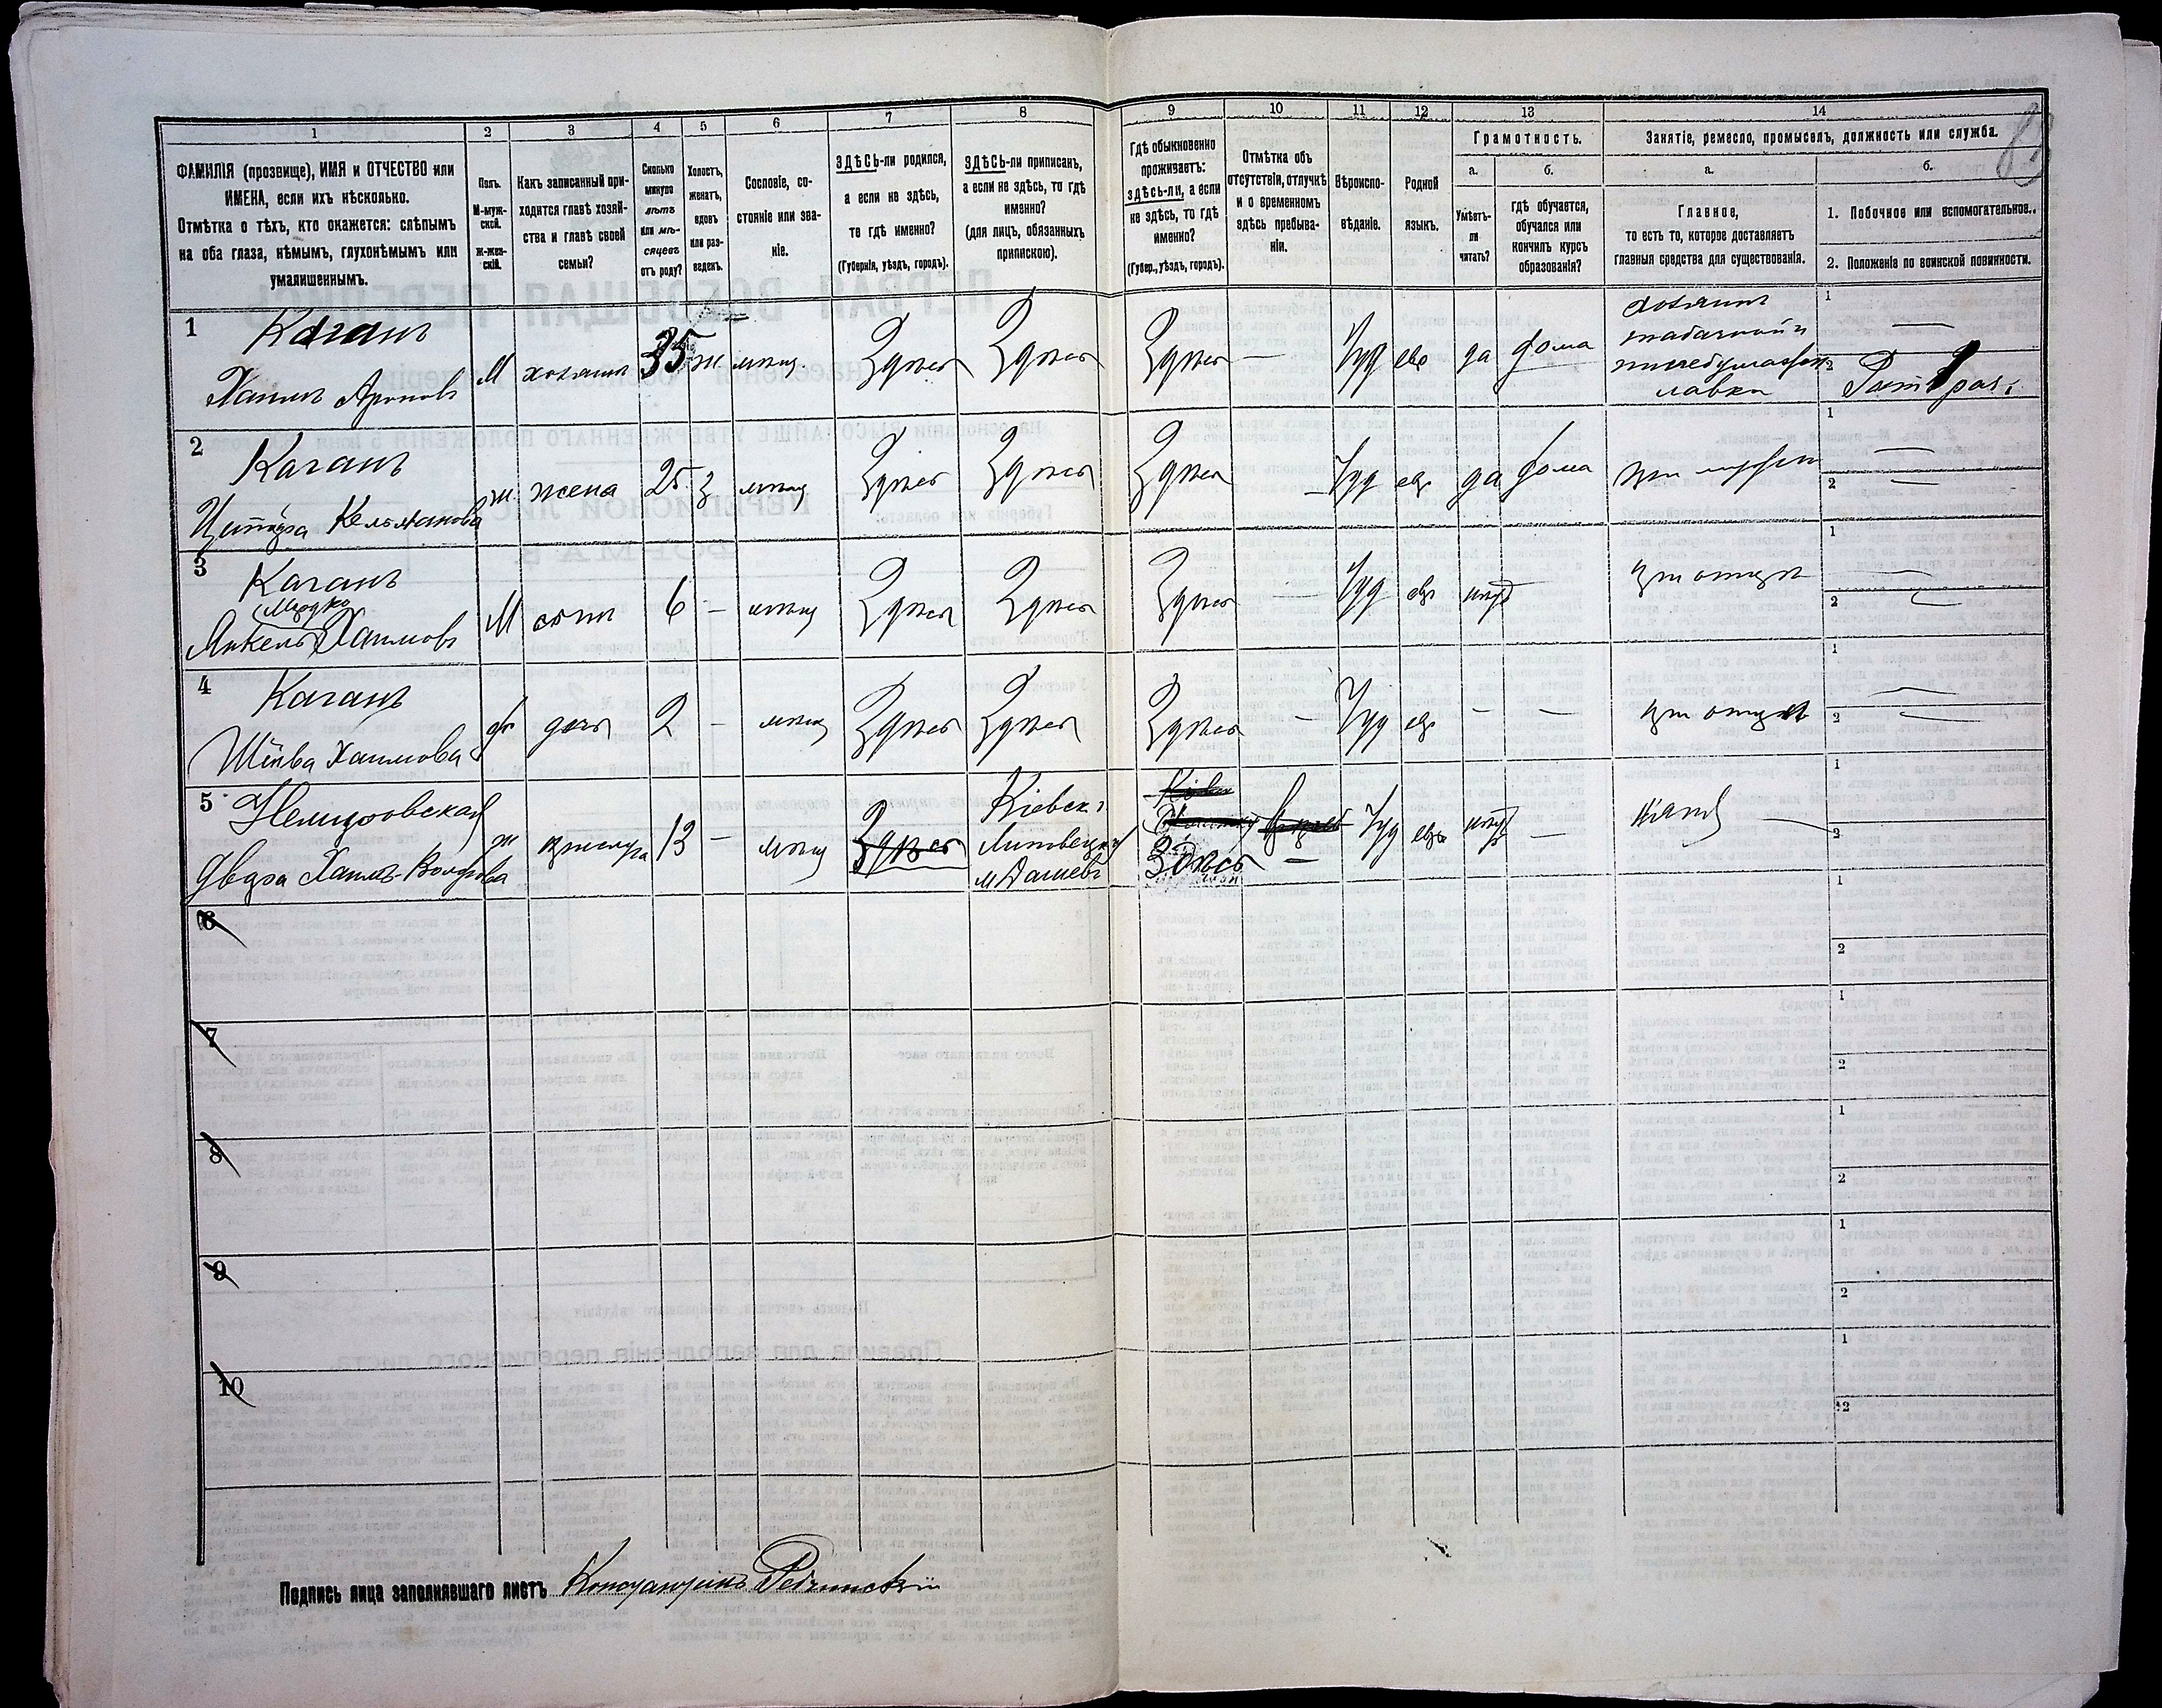 1 2 3 4 5 6 7 8 9 10 11 12 13 14
ФАМИЛІЯ (прозвище), ИМЯ и ОТЧЕСТВО или
ИМЕНА, если ихъ нѣсколько.
Отмѣтка о тѣхъ, кто окажется: слѣпымъ
на оба глаза, нѣмымъ, глухонѣмымъ или
умалишеннымъ.
Полъ.
М-муж-
ской.
Ж-жен-
скій.
Какъ записанный при-
ходится главѣ хозяй-
ства и главѣ своей
семьи?
Сколько
минуло
лѣтъ
или мѣ-
сяцевъ
отъ роду?
Холостъ,
женатъ,
вдовъ
или раз-
веденъ.
Сословіе, со-
стояніе или зва-
ніе.
ЗДѢСЬ-ли родился,
а если не здѣсь,
то гдѣ именно?
(Губернія, уѣздъ, городъ).
ЗДѢСЬ-ли приписанъ,
а если не здѣсь, то гдѣ
именно?
(для лицъ, обязанныхъ
припискою).
Гдѣ обыкновенно
проживаетъ:
здѣсь-ли, а если
не здѣсь, то гдѣ
именно?
(Губер., уѣздъ, городъ).
Отмѣтка объ
отсутствіи, отлучкѣ
и о временномъ
здѣсь пребыва-
ніи.
Вѣроиспо-
вѣданіе.
Родной
языкъ.
Грамотность.
а.
Умѣетъ-
ли
читать?
б.
гдѣ обучается,
обучался или
кончилъ курсъ
образованія?
Занятіе, ремесло, промыселъ, должность или служба.
а.
Главное,
то есть то, которое доставляетъ
главныя средства для существованія.
б.
1. Побочное или вспомогательное.
2. Положеніе по воинской повинности.
1 Каганъ
Хаимъ Ароновъ М хозяинъ 35 ж мѣщ. Здѣсь Здѣсь Здѣсь — Іуд евр да дома
хозяинъ
табачной и
лавки
1 —
2
2 Каганъ
Кельмановa ж жена 25 з мѣщ Здѣсь Здѣсь Здѣсь Іуд евр да дома при мужѣ
1 —
2 —
3 Каганъ
Мордко
Янкель Хаимовъ М сынъ 6 — мѣщ Здѣсь Здѣсь Здѣсь — Іуд евр нѣтъ при отцѣ
1 —
2 —
4 Каганъ
Хаимова дочь 2 — мѣщ Здѣсь Здѣсь Здѣсь — Іуд евр — — при отцѣ
1 —
2 —
5 Немировская
Хаимъ- ж прислуга 13 — мѣщ Здѣсь
Кіевск.
Липовецкій
м Дашевъ
Здѣсь — Іуд евр нѣтъ —
1
2
6
1
2
7
1
2
8
1
2
9
1
2
10
1
2
Подпись лица заполнявшаго листъ Константинъ